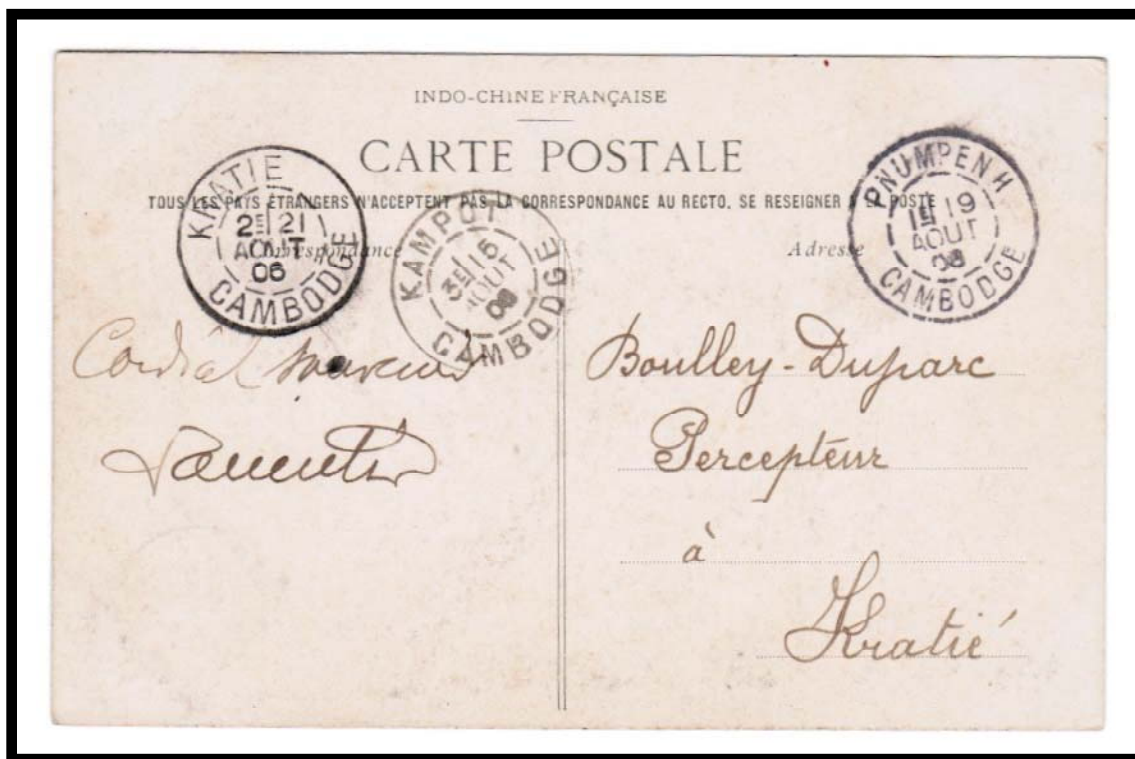 INDO-CHINE FRANÇAISE
CARTE POSTALE
TOUS LES PAYS ÉTRANGERS N'ACCEPTENT PAS LA CORRESPONDANCE AU RECTO, SE RESEIGNER À LA POSTE
Correspondance
Adresse
KRATIE
2E 21
AOUT
06
CAMBODGE
KAMPOT
3E 15
AOUT
06
CAMBODGE
PNUMPENH
1E 19
AOUT
06
CAMBODGE
Cordial souvenir
Boulley-Duparc
Percepteur
à
Kratié